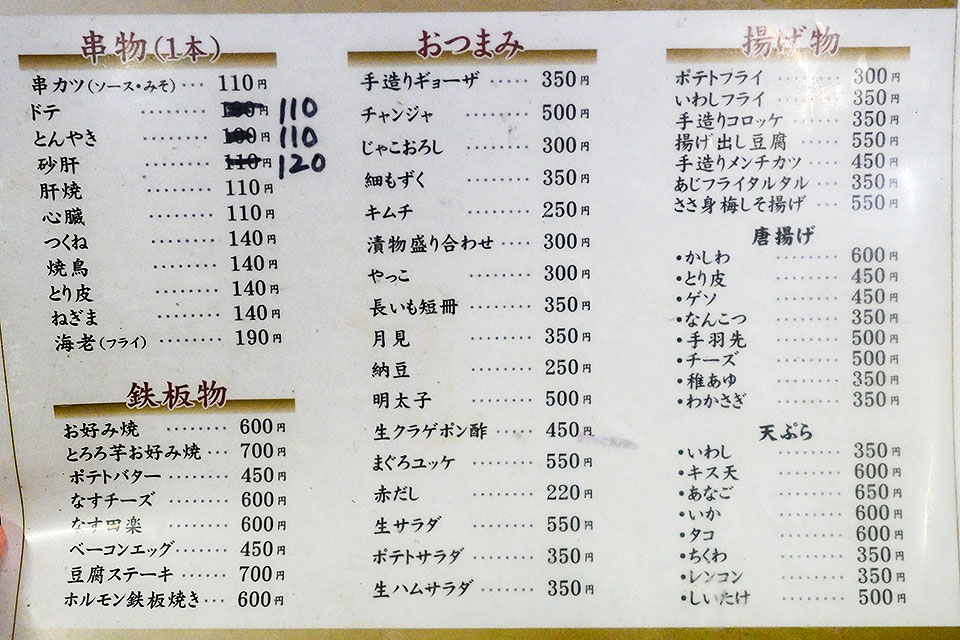 串物(1本)
串カツ(ソース・みそ)… 110円
ドテ ……… 100円 110
とんやき ……… 100円 110
砂肝 ……… 110円 120
肝焼 ……… 110円
心臓 ……… 110円
つくね ……… 140円
焼鳥 ……… 140円
とり皮 ……… 140円
ねぎま ……… 140円
海老(フライ) …… 190円
鉄板物
お好み焼 ……… 600円
とろろ芋お好み焼… 700円
ポテトバター ……… 450円
なすチーズ ……… 600円
なす田楽 ……… 600円
ベーコンエッグ…… 450円
豆腐ステーキ …… 700円
ホルモン鉄板焼き… 600円
おつまみ
手造りギョーザ …… 350円
チャンジャ ……… 500円
じゃこおろし ……… 300円
細もずく ……… 350円
キムチ ……… 250円
漬物盛り合わせ …… 300円
やっこ ……… 300円
長いも短冊 ……… 350円
月見 ……… 350円
納豆 ……… 250円
明太子 ……… 500円
生クラゲポン酢 …… 450円
まぐろユッケ ……… 550円
赤だし ……… 220円
生サラダ ……… 550円
ポテトサラダ ……… 350円
生ハムサラダ ……… 350円
揚げ物
ポテトフライ ……… 300円
いわしフライ ……… 350円
手造りコロッケ …… 350円
揚げ出し豆腐 …… 550円
手造りメンチカツ … 450円
あじフライタルタル … 350円
ささ身梅しそ揚げ … 550円
唐揚げ
・かしわ ……… 600円
・とり皮 ……… 450円
・ゲソ ……… 450円
・なんこつ ……… 350円
・手羽先 ……… 500円
・チーズ ……… 500円
・稚あゆ ……… 350円
・わかさぎ ……… 350円
天ぷら
・いわし ……… 350円
・キス天 ……… 600円
・あなご ……… 650円
・いか ……… 600円
・タコ ……… 600円
・ちくわ ……… 350円
・レンコン ……… 350円
・しいたけ ……… 500円